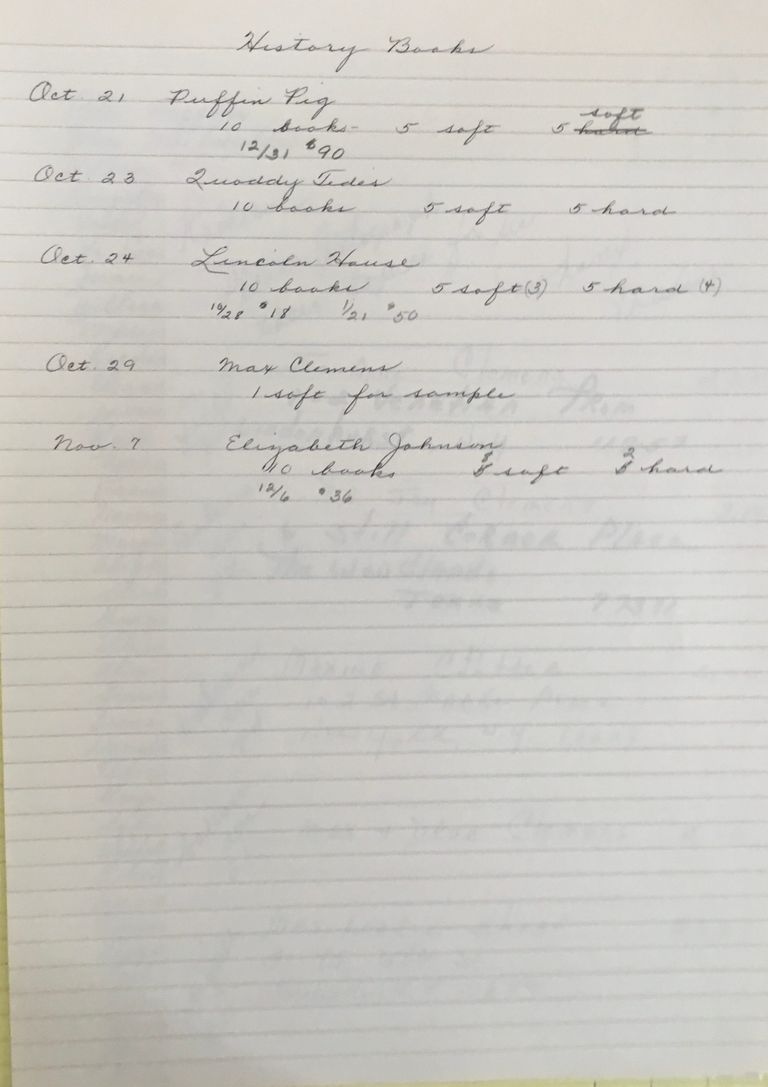 History Books
Oct. 21 Puffin Pig
soft
10 books- 5 soft 5 hard
12/31 $90
Oct. 23 Quoddy Tides
10 books 5 soft 5 hard
Oct. 24 Lincoln House
10 books 5 soft (3) 5 hard (4)
10/28 $18 1/21 $50
Oct. 29 Max Clemens
1 soft for sample
Nov. 7 Elizabeth Johnson
10 books 8 soft 2 hard
12/6 $36